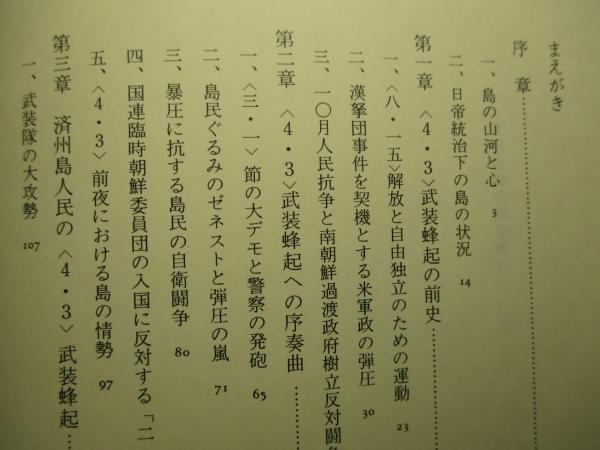 まえがき
序 章……………………
一、島の山河と心 3
二、日帝統治下の島の状況 14
第一章 〈4・3〉武装蜂起の前史…………
一、〈八・一五〉解放と自由独立のための運動 23
二、漢拏団事件を契機とする米軍政の弾圧 30
三、一〇月人民抗争と南朝鮮過渡政府樹立反対闘争
第二章 〈4・3〉武装蜂起への序奏曲…………
一、〈三・一〉節の大デモと警察の発砲 65
二、島民ぐるみのゼネストと弾圧の嵐 71
三、暴圧に抗する島民の自衛闘争 80
四、国連臨時朝鮮委員団の入国に反対する「二
五、〈4・3〉前夜における島の情勢 97
第三章 済州島人民の〈4・3〉武装蜂起…
一、武装隊の大攻勢 107